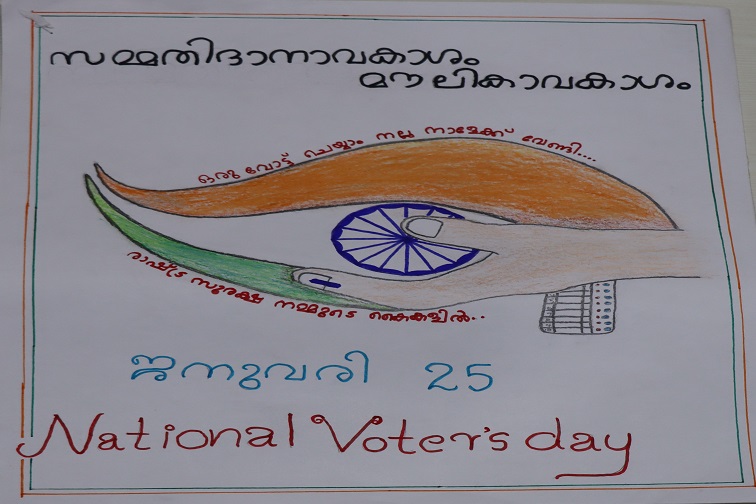 സമ്മതിദാനാവകാശം
മൗലികാവകാശം
ഒരു വോട്ട് ചെയ്യാം നല്ല നാളേക്ക് വേണ്ടി....
രാഷ്ട്ര സുരക്ഷ നമ്മുടെ കൈകളിൽ..
ജനുവരി 25
National Voter's day